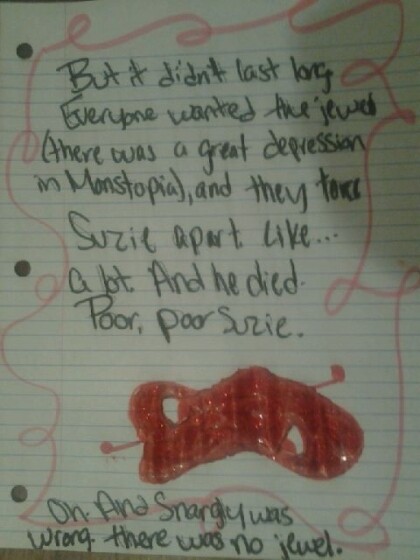 But it didn't last long
Everyone wanted the jewel
(there was a great depression
in Monstopia), and they tore
Suzie apart. Like...
a lot. And he died.
Poor, poor Suzie.
Oh. And Snargly was
wrong. there was no jewel.